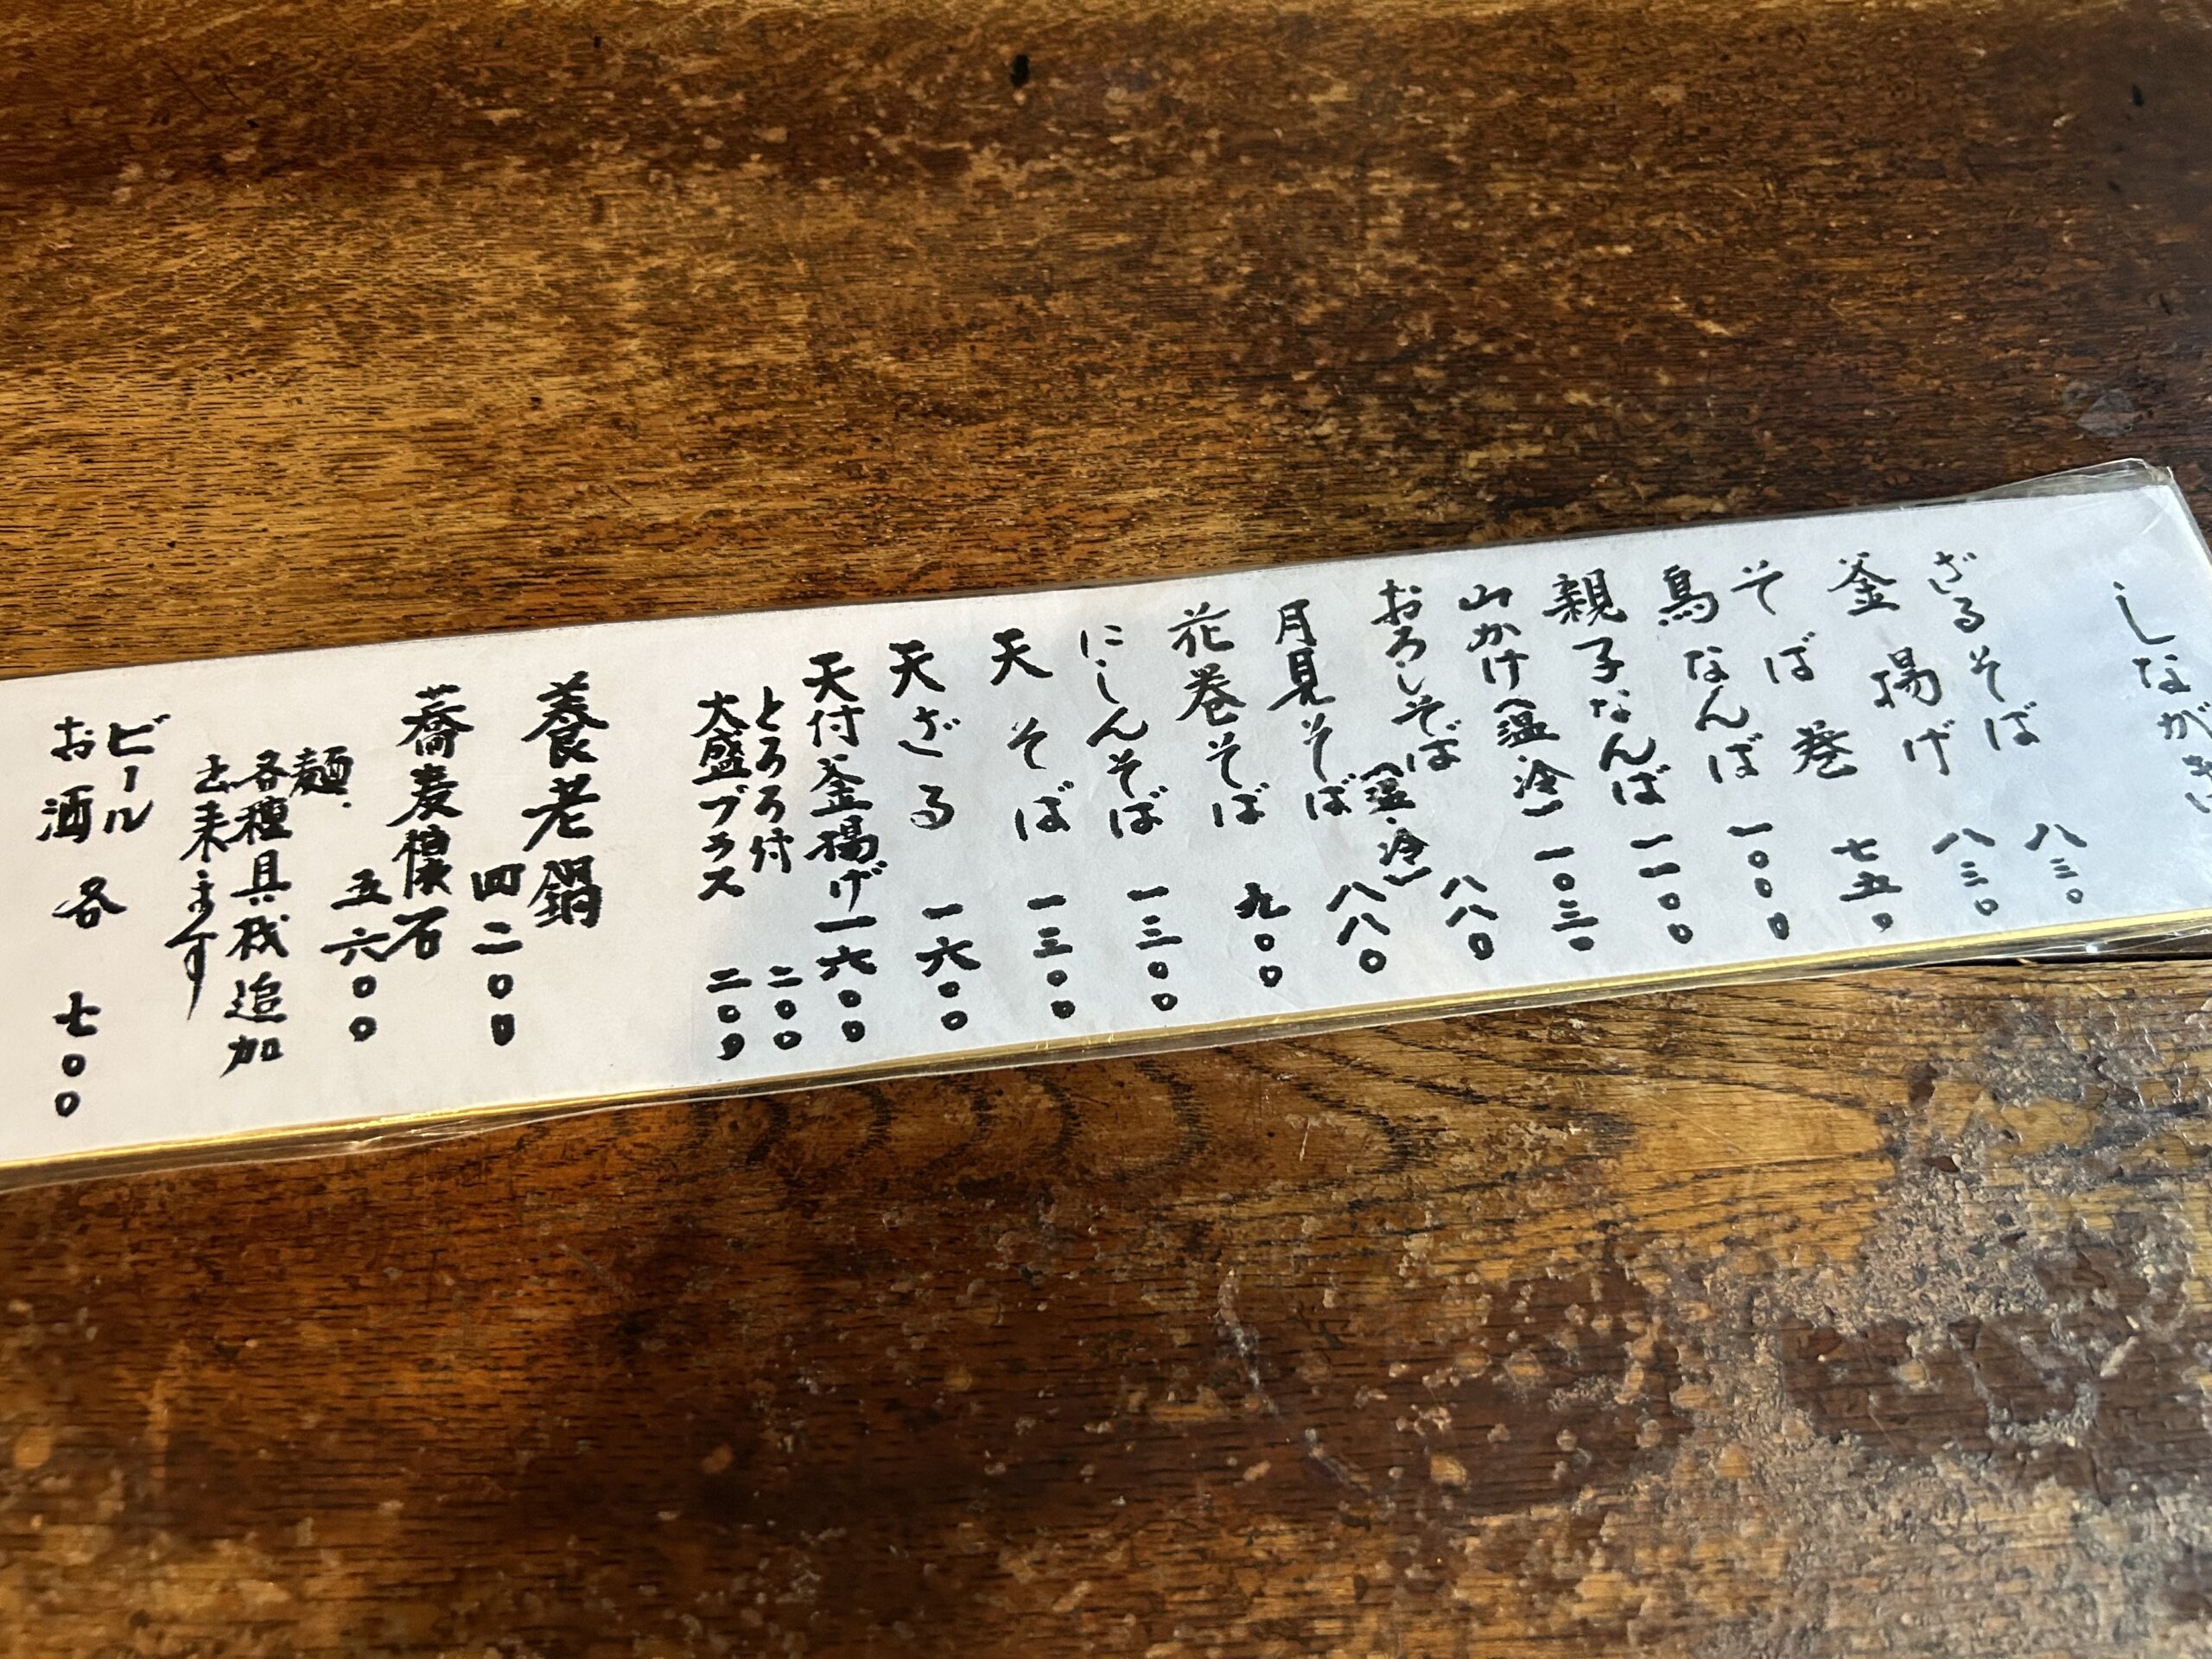 しながき
ざるそば 八三〇
釜揚げ 八三〇
そば巻 七五〇
鳥なんば 一〇〇〇
親子なんば 一一〇〇
山かけ（温・冷） 一〇三〇
おろしそば（温・冷） 八八〇
月見そば 八八〇
花巻そば 九〇〇
にしんそば 一三〇〇
天そば 一三〇〇
天ざる 一六〇〇
天付釜揚げ 一六〇〇
とろろ付 二〇〇
大盛プラス 二〇〇
養老鍋 四二〇〇
蕎麦懐石 五六〇〇
麺、
各種具材追加
出来ます
ビール
お酒 各 七〇〇